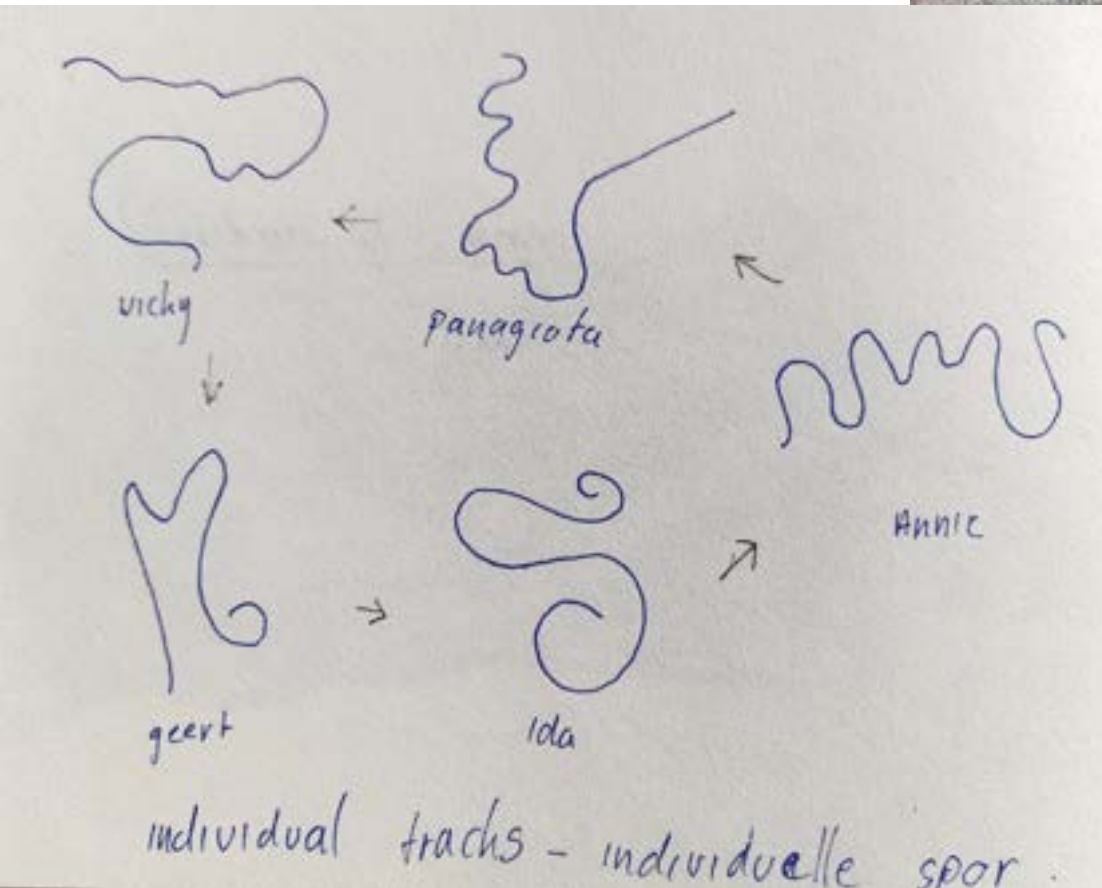 vichy
panagiota
Annie
geert
Ida
individual tracks - individuelle spor.